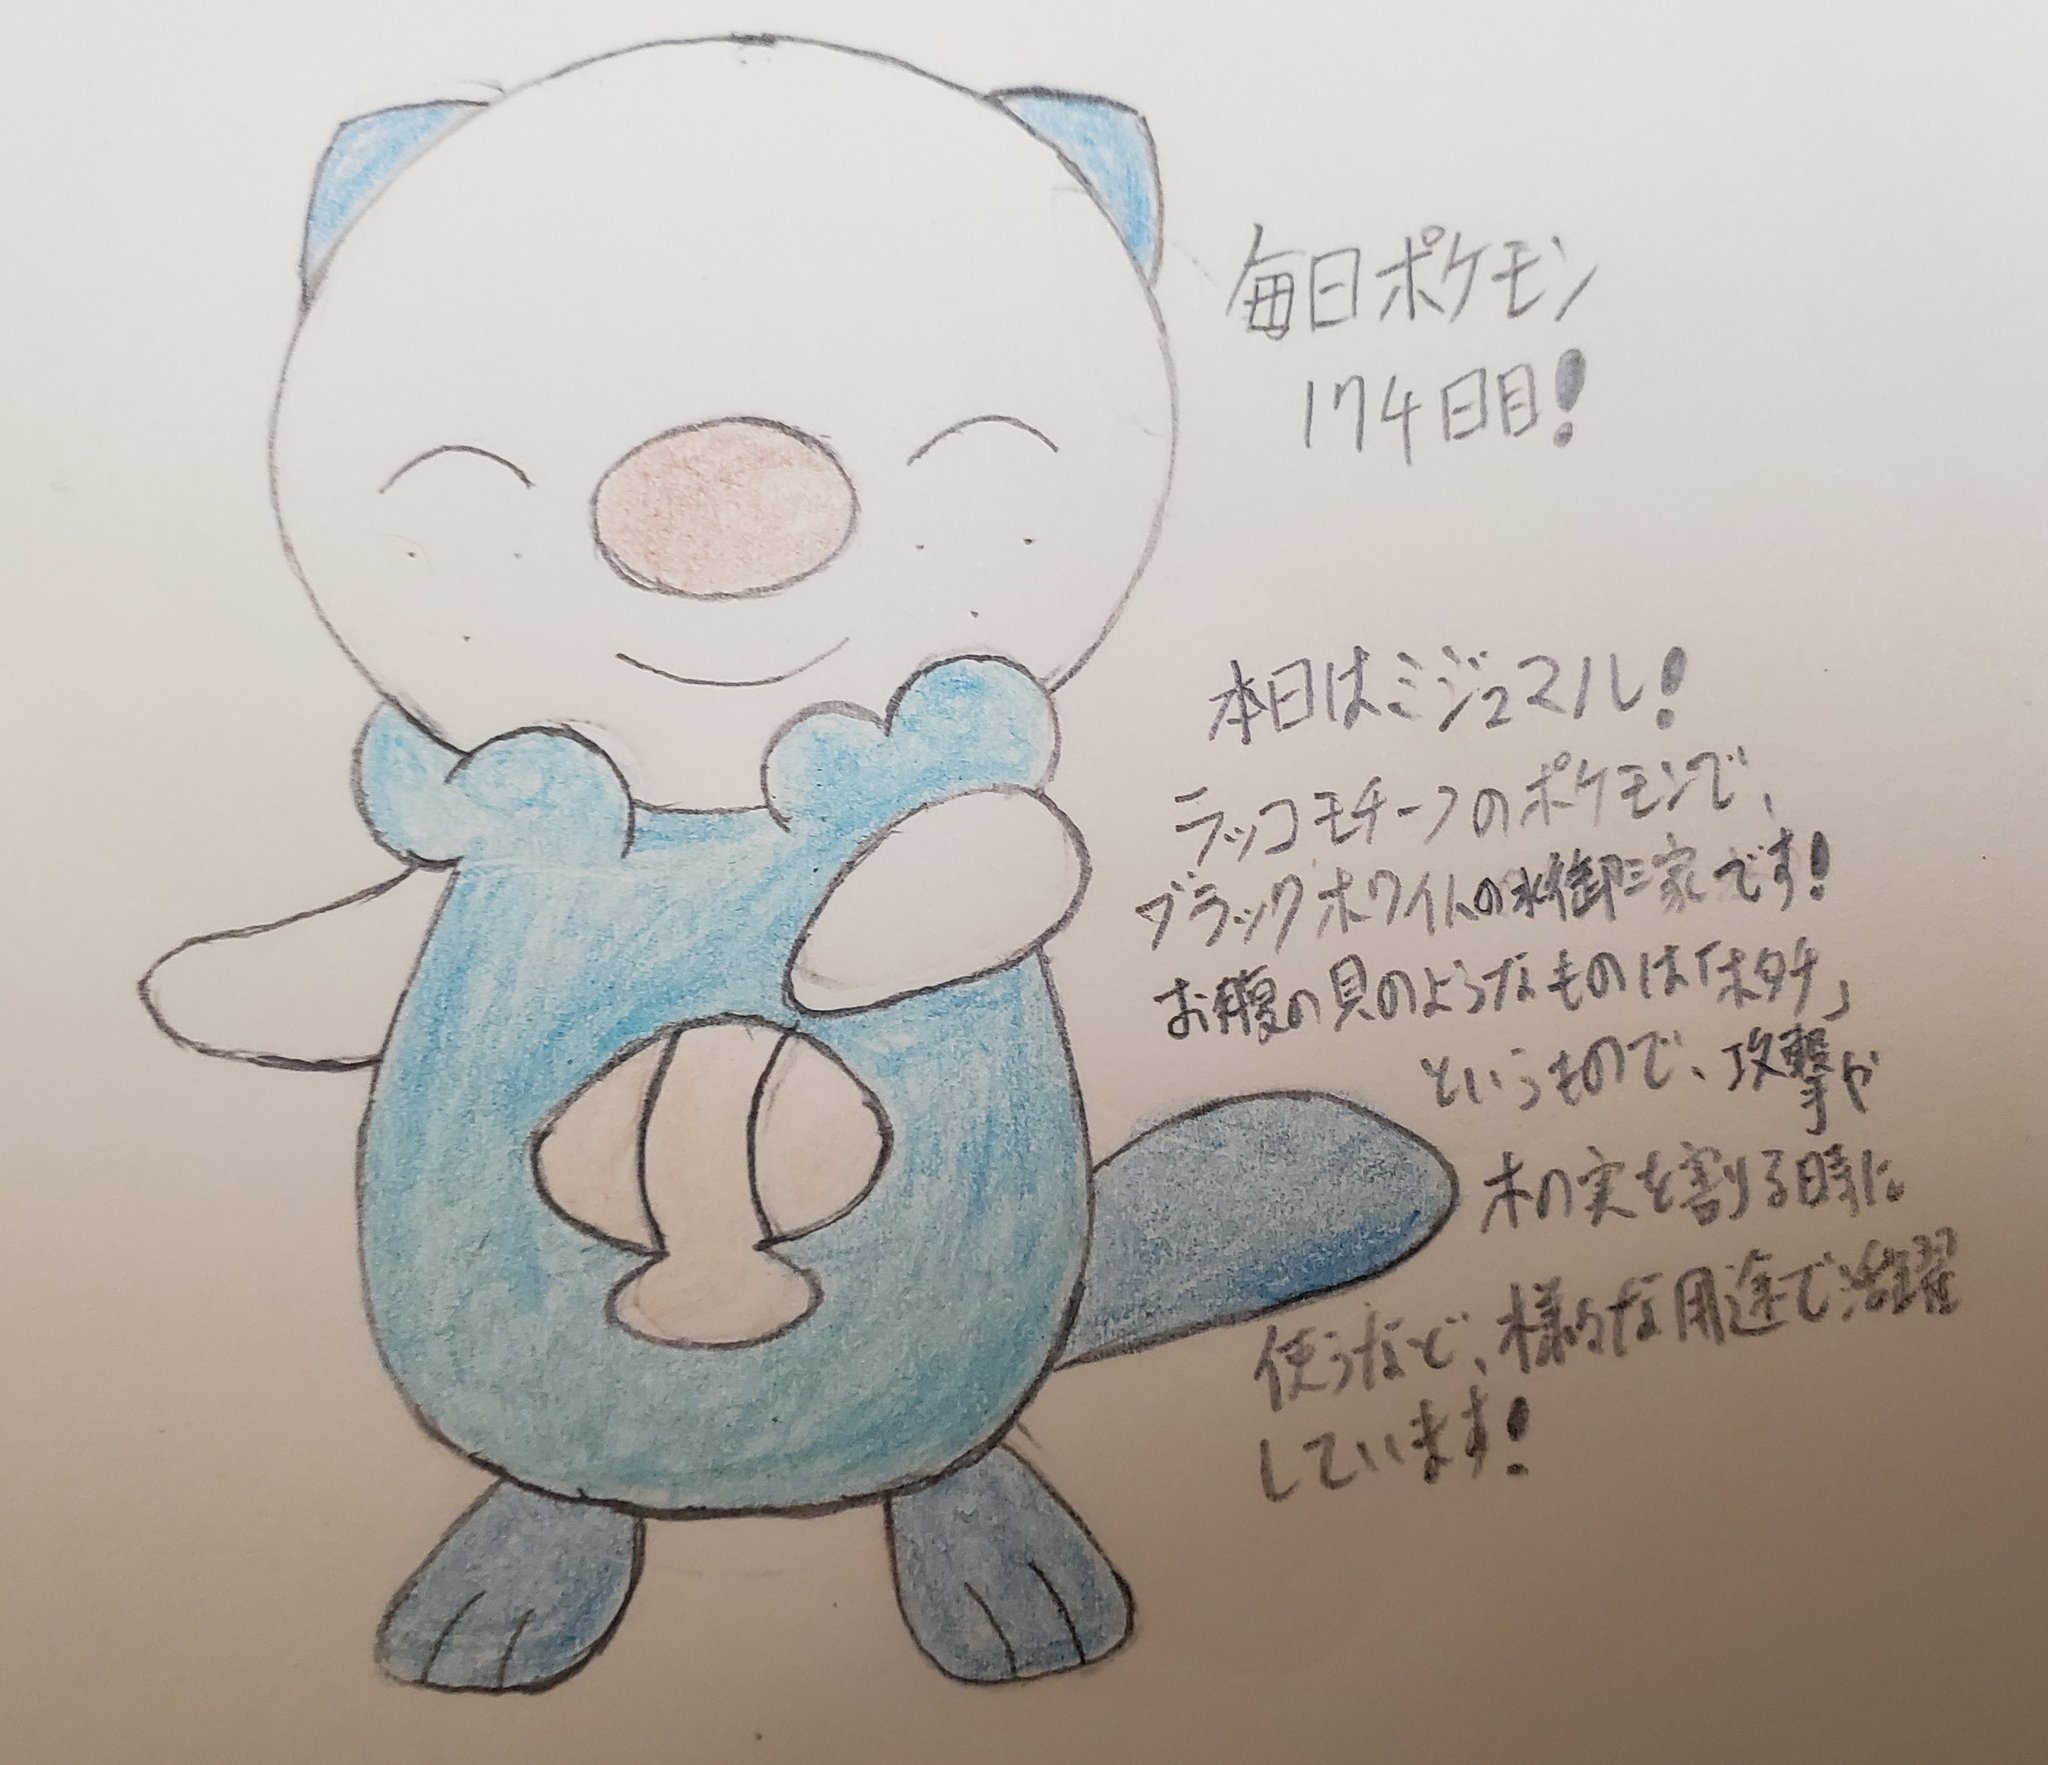 毎日ポケモン
174日目!
本日はミジュマル!
ラッコモチーフのポケモンで、
ブラックホワイトの水御三家です!
お腹の貝のようなものは「ホタチ」
というもので、攻撃や
木の実を割る時に
使うなど、様々な用途で活躍
しています!